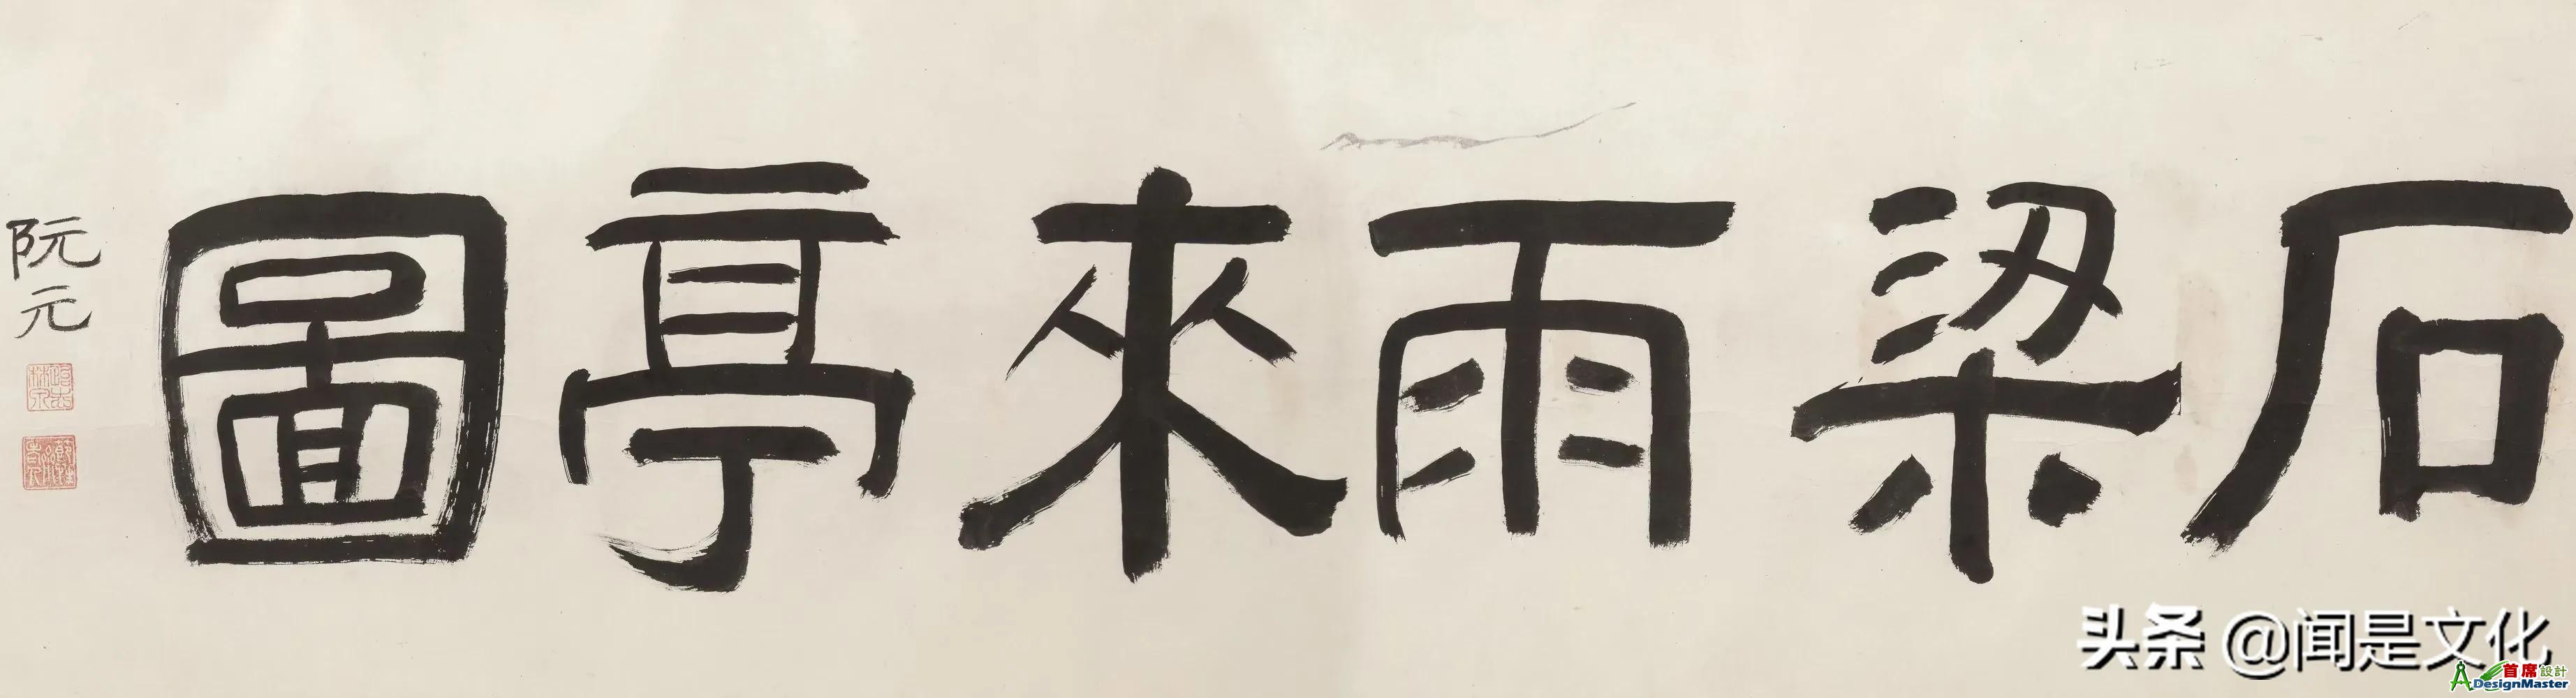 石梁雨來亭圖
阮元
头条 @闻是文化
首席設計
DesignMaster